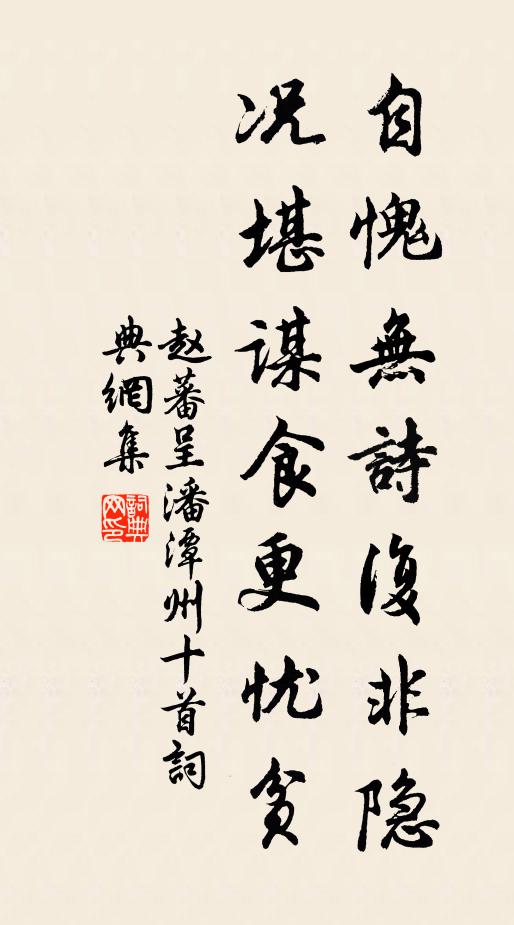 自愧無詩復非隐
况堪謀食更忧貧
赵蕃呈潘潭州十首詞
典網集
詞典
网印